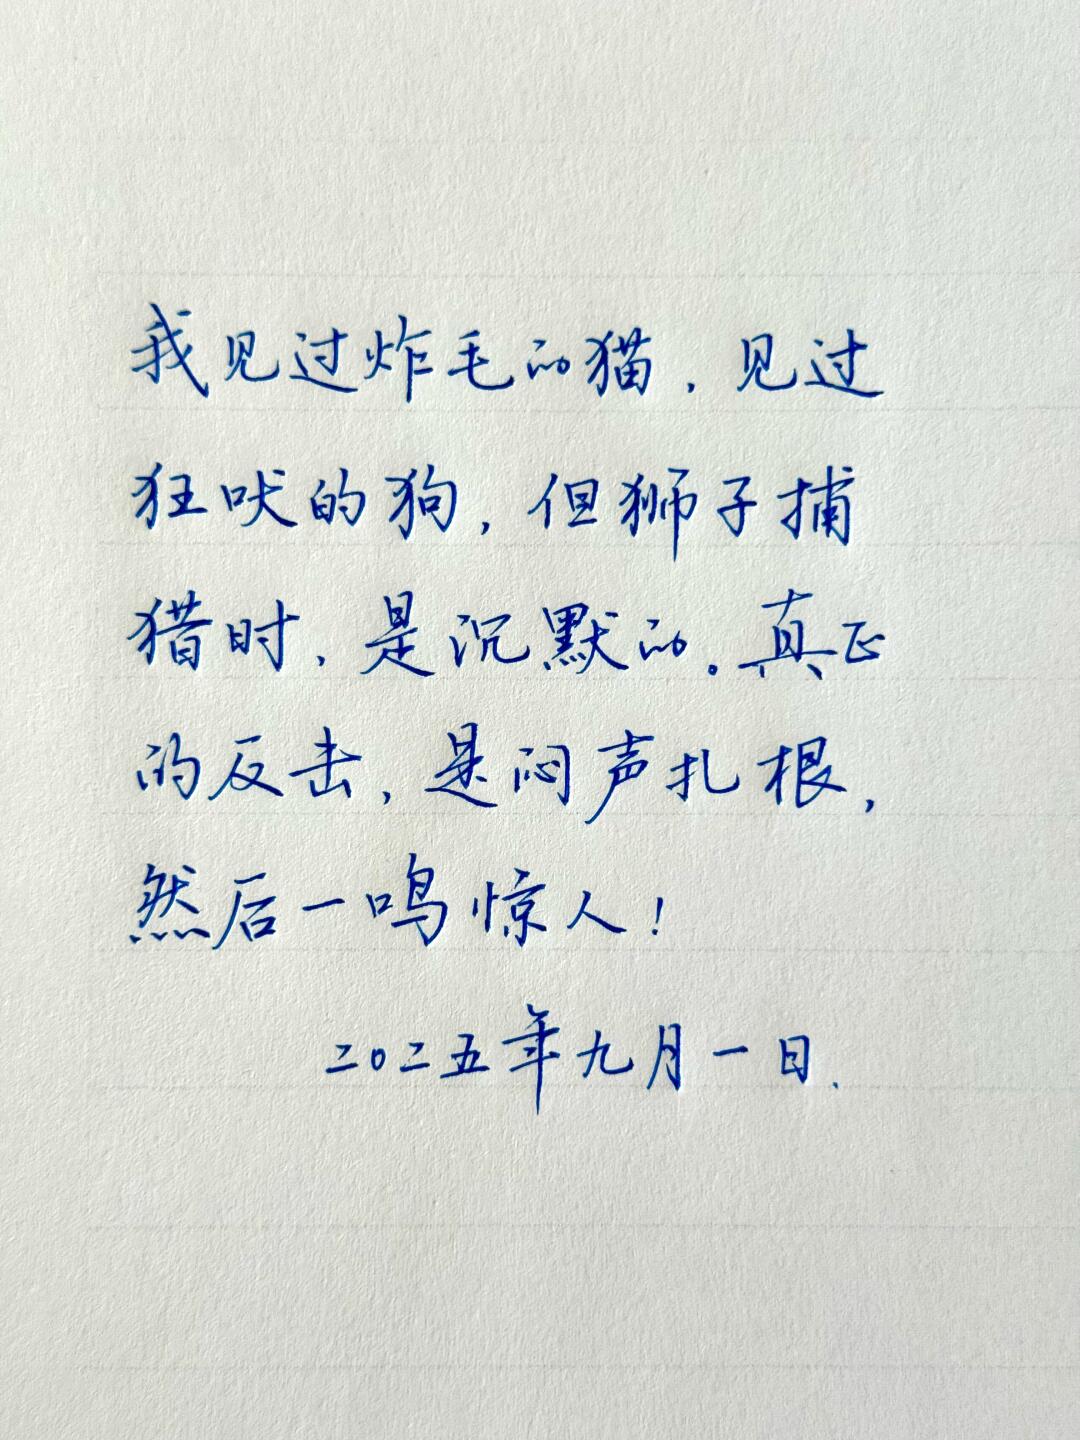 我见过炸毛的猫，见过
狂吠的狗，但狮子捕
猎时，是沉默的。真正
的反击，是闷声扎根，
然后一鸣惊人！
二〇二五年九月一日.